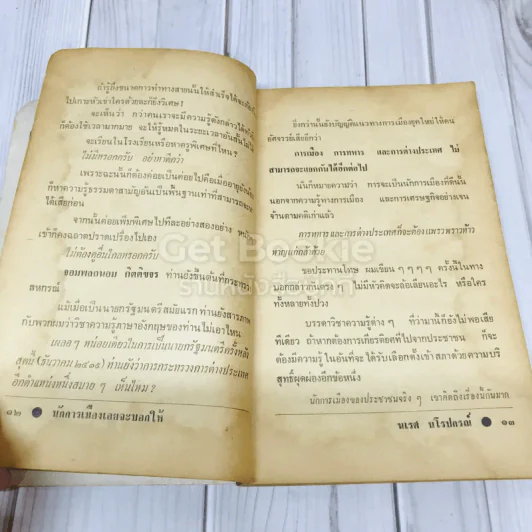 ถ้ารู้ถึงขนาดการทำทางสายนั้นให้สำเร็จได้
ไปเกาะหัวเขาใครด้วยจะก็ยิ่งวิเศษ !
จะเห็นว่า กว่าคนเราจะมีความรู้ดังกล่าวได้
ก็ต้องใช้เวลามากมาย จะให้รู้หมดในระยะเวลาอันสั้น
จะเรียนในโรงเรียนหรือหาครูพิเศษที่ไหน ?
ไม่มีหรอกครับ อย่าหาดีกว่า
เพราะฉะนั้นก็ต้องค่อยเป็นค่อยไปคือเมื่ออายุยังน้อย
ก็หาความรู้ธรรมดาสามัญอันเป็นพื้นฐานเท่าที่สามารถ
ได้เสียก่อน
จากนั้นค่อยเพิ่มพิเศษไปทีละอย่างสองอย่าง
เข้าก็คงฉลาดปราดเปรื่องไปเอง
ไม่ต้องดูอื่นไกลหรอกครับ
จอมพลถนอม กิตติขจร ท่านยังขึ้นต้นที่กระทรวง
สหกรณ์
แม้เมื่อเป็นนายกรัฐมนตรีสมัยแรก ท่านยังสารภาพ
กับพวกผมว่าวิชาความรู้ภาษาอังกฤษของท่านไม่เอาไหน
เผลอ ๆ หน่อยเดียวในการเป็นนายกรัฐมนตรีครั้งหลัง
สุดนี้ (ธันวาคม ๒๕๑๔) ท่านยังว่าการกระทรวงการต่างประเทศ
อีกตำแหน่งหนึ่งสบาย ๆ เห็นไหม ?
๘๒ ● นักการเมืองเธอจะบอกให้
ยิ่งกว่านั้นยังบัญญัติแนวทางการเมืองยุคใหม่ให้คน
อัศจรรย์เสียอีกว่า
การเมือง การทหาร และการต่างประเทศ ไม่
สามารถจะแยกกันได้อีกต่อไป
นั่นก็หมายความว่า การจะเป็นนักการเมืองที่ดีนั้น
นอกจากความรู้ทางการเมือง และการเศรษฐกิจอย่างเจน
จ้านตามคติเก่าแล้ว
การทหารและการต่างประเทศก็จะต้องแพรวพราวห้าว
หาญแก่กล้าด้วย
ขอประทานโทษ ผมเขียน ๆ ๆ ๆ ๆ ครั้งนี้ในทาง
นอกกลางกันตรง ๆ ไม่มีหัวคิดจะล้อเลียนอะไร หรือใคร
ทั้งหลายทั้งปวง
บรรดาวิชาความรู้ต่าง ๆ ที่ว่ามานี้ก็ยังไม่พอเสีย
ทีเดียว ถ้าหากต้องการเกียรติยศที่ไปจากประชาชน ก็จะ
ต้องมีความรู้ในอันที่จะได้รับเลือกตั้งเข้าสภาด้วยความบริ
สุทธิ์ผุดผ่องอีกข้อหนึ่ง
นักการเมืองของประชาชนจริง ๆ เขาคิดถึงเรื่องนี้กันมาก
นเรศ นโรปกรณ์ ● ๑๓
Get Bookie
ร้านหนังสือเก่า